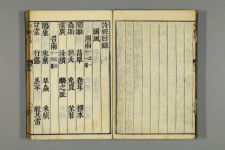 詩經目錄
國風
周南
關雎 葛覃 卷耳 樛木
螽斯 桃夭 兔罝 芣苢
漢廣 汝墳 麟之趾
召南
鵲巢 采蘩 草蟲 采蘋
甘棠 行露 羔羊 殷其雷